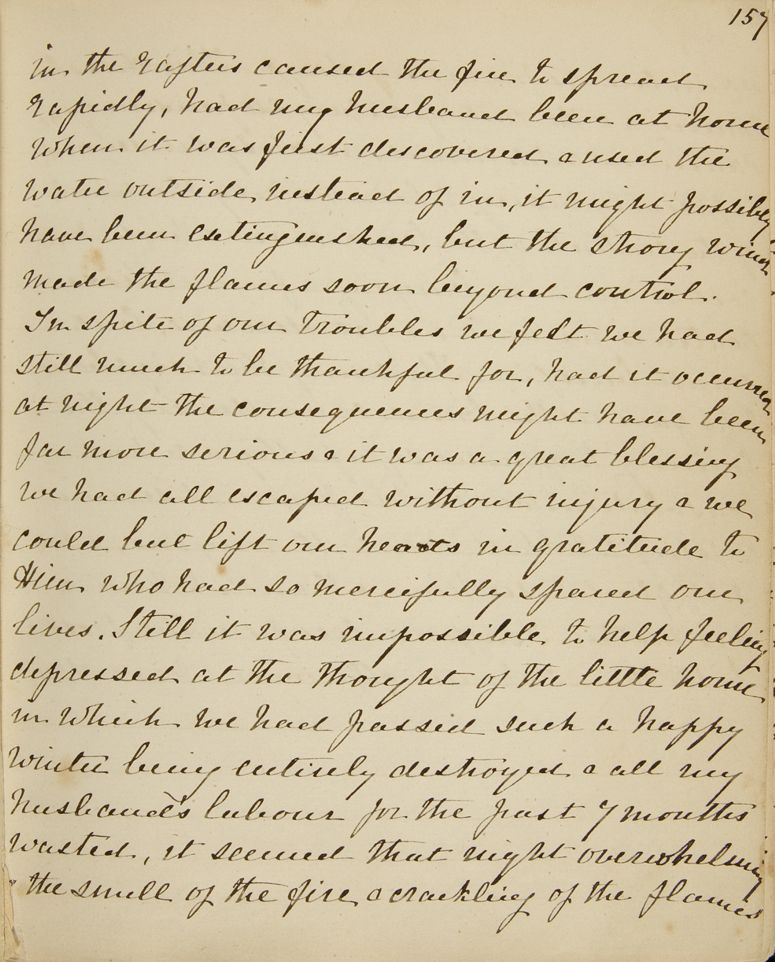 157
in the rafters caused the fire to spread
rapidly, had my husband been at home
when it was first discovered & used the
water outside, instead of in, it might possibly
have been extinguished, but the strong wind
made the flames soon beyond control.
In spite of our troubles we felt we had
still much to be thankful for, had it occurred
at night the consequences might have been
far more serious & it was a great blessing
we had all escaped without injury & we
could but lift our hearts in gratitude to
Him who had so mercifully spared our
lives. Still it was impossible to help feeling
depressed at the thought of the little home
in which we had passed such a happy
winter being entirely destroyed & all my
husband's labour for the past 7 months
wasted, it seemed that night overwhelming
the smell of the fire & crackling of the flames